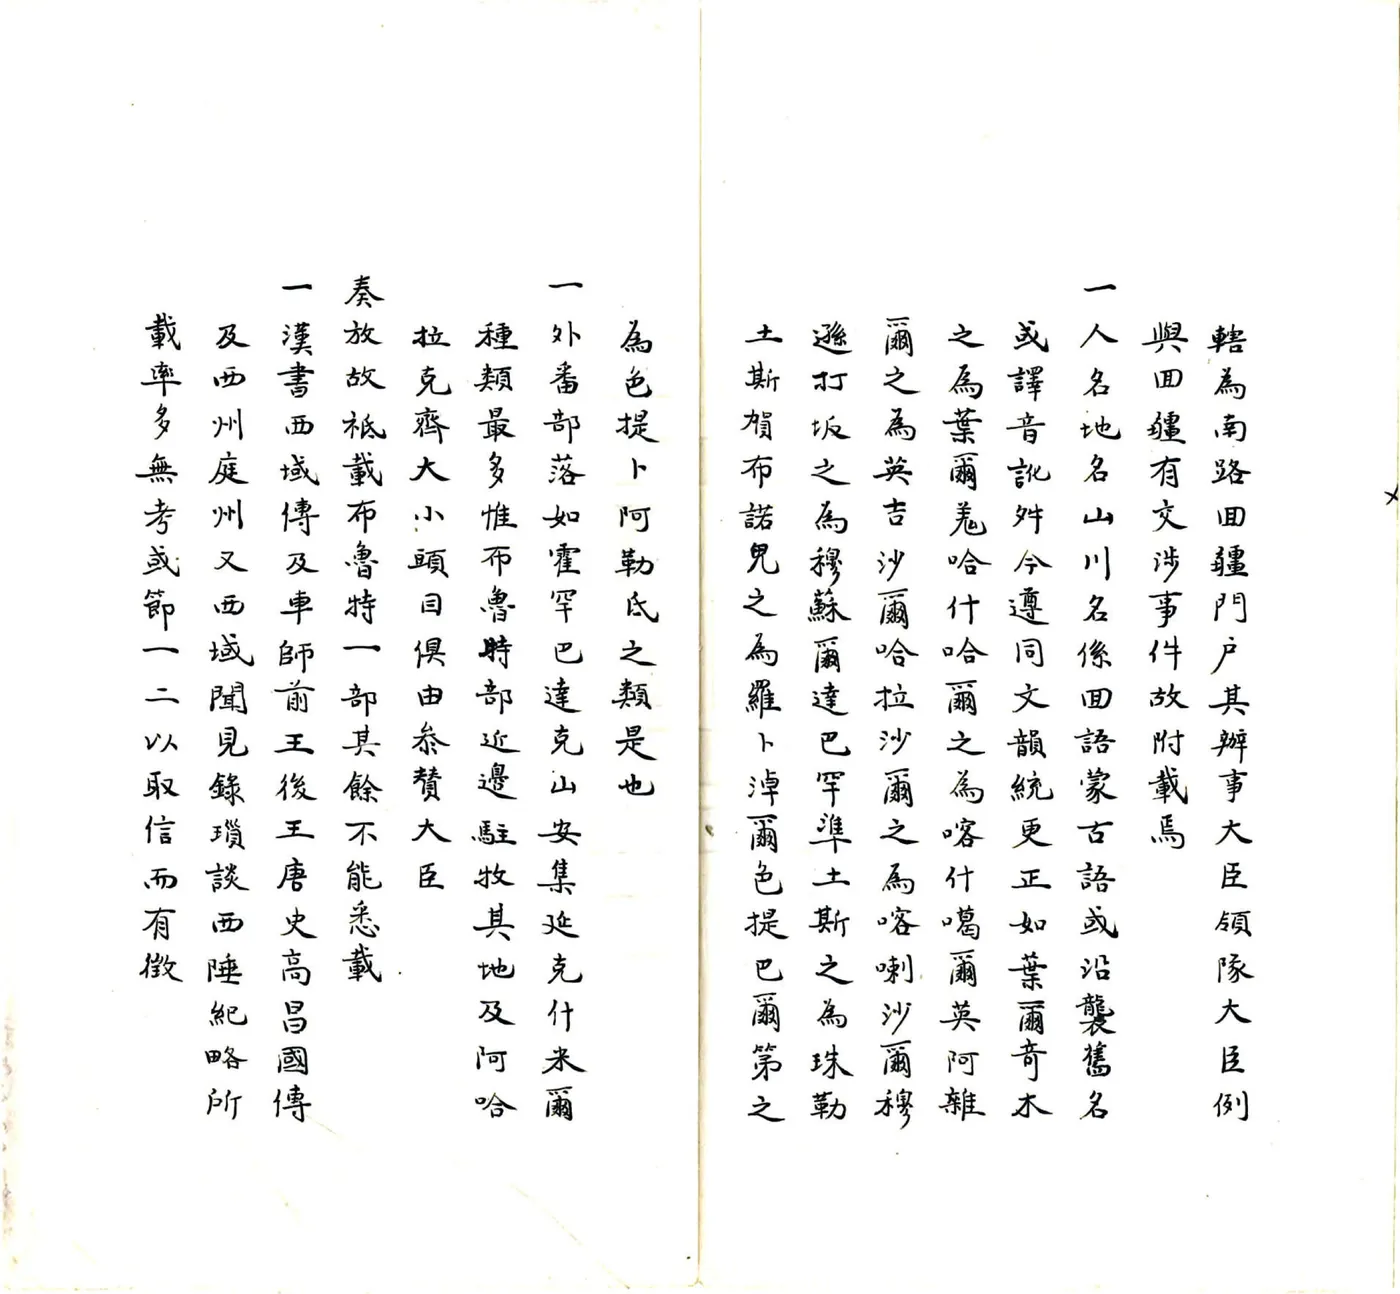 轄為南路回疆門户其辦事大臣領隊大臣例
與回疆有交涉事件故附載焉
一人名地名山川名係回語蒙古語或沿襲舊名
或譯音訛舛今遵同文韻統更正如葉爾奇木
之為葉爾羗哈什哈爾之為喀什噶爾英阿雜
爾之為英吉沙爾哈拉沙爾之為喀喇沙爾穆
遜打坂之為穆蘇爾達巴罕準土斯之為珠勒
土斯賀布諾兒之為羅卜淖爾色提巴爾第之
為色提卜阿勒氐之類是也
一外番部落如霍罕巴達克山安集延克什米爾
種類最多惟布魯特部近邊駐牧其地及阿哈
拉克齊大小頭目俱由叅贊大臣
奏放故祗載布魯特一部其餘不能悉載
一漢書西域傳及車師前王後王唐史高昌國傳
及西州庭州又西域聞見錄瑣談西陲紀略所
載率多無考或節一二以取信而有徵